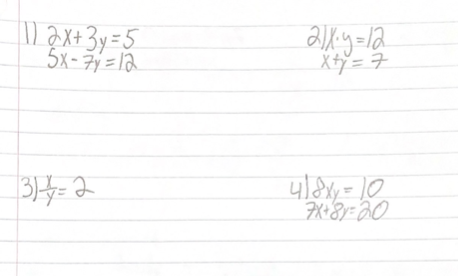 1) 2x+3y=5
5x-7y=12
2) x·y=12
x+y=7
3) x/y=2
4) 8xy=10
7x+8y=20